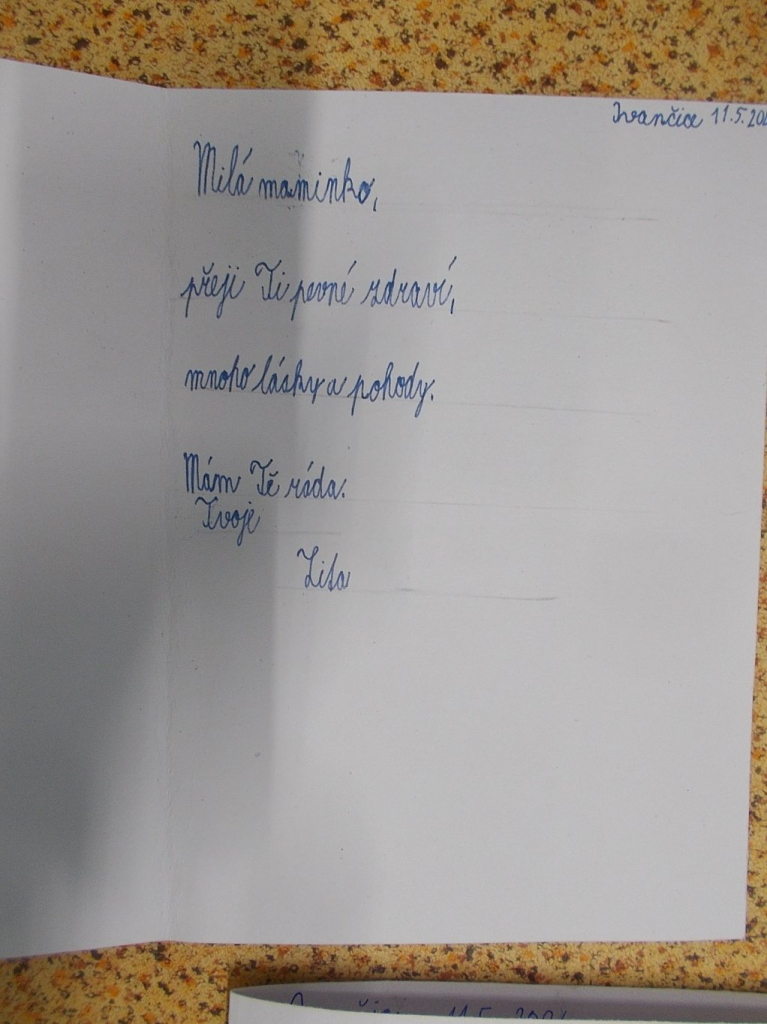 Ivančice 11.5.202
Milá maminko,
přeji Ti pevné zdraví,
mnoho lásky a pohody.
Mám Tě ráda.
Tvoje
Zita
11.5.